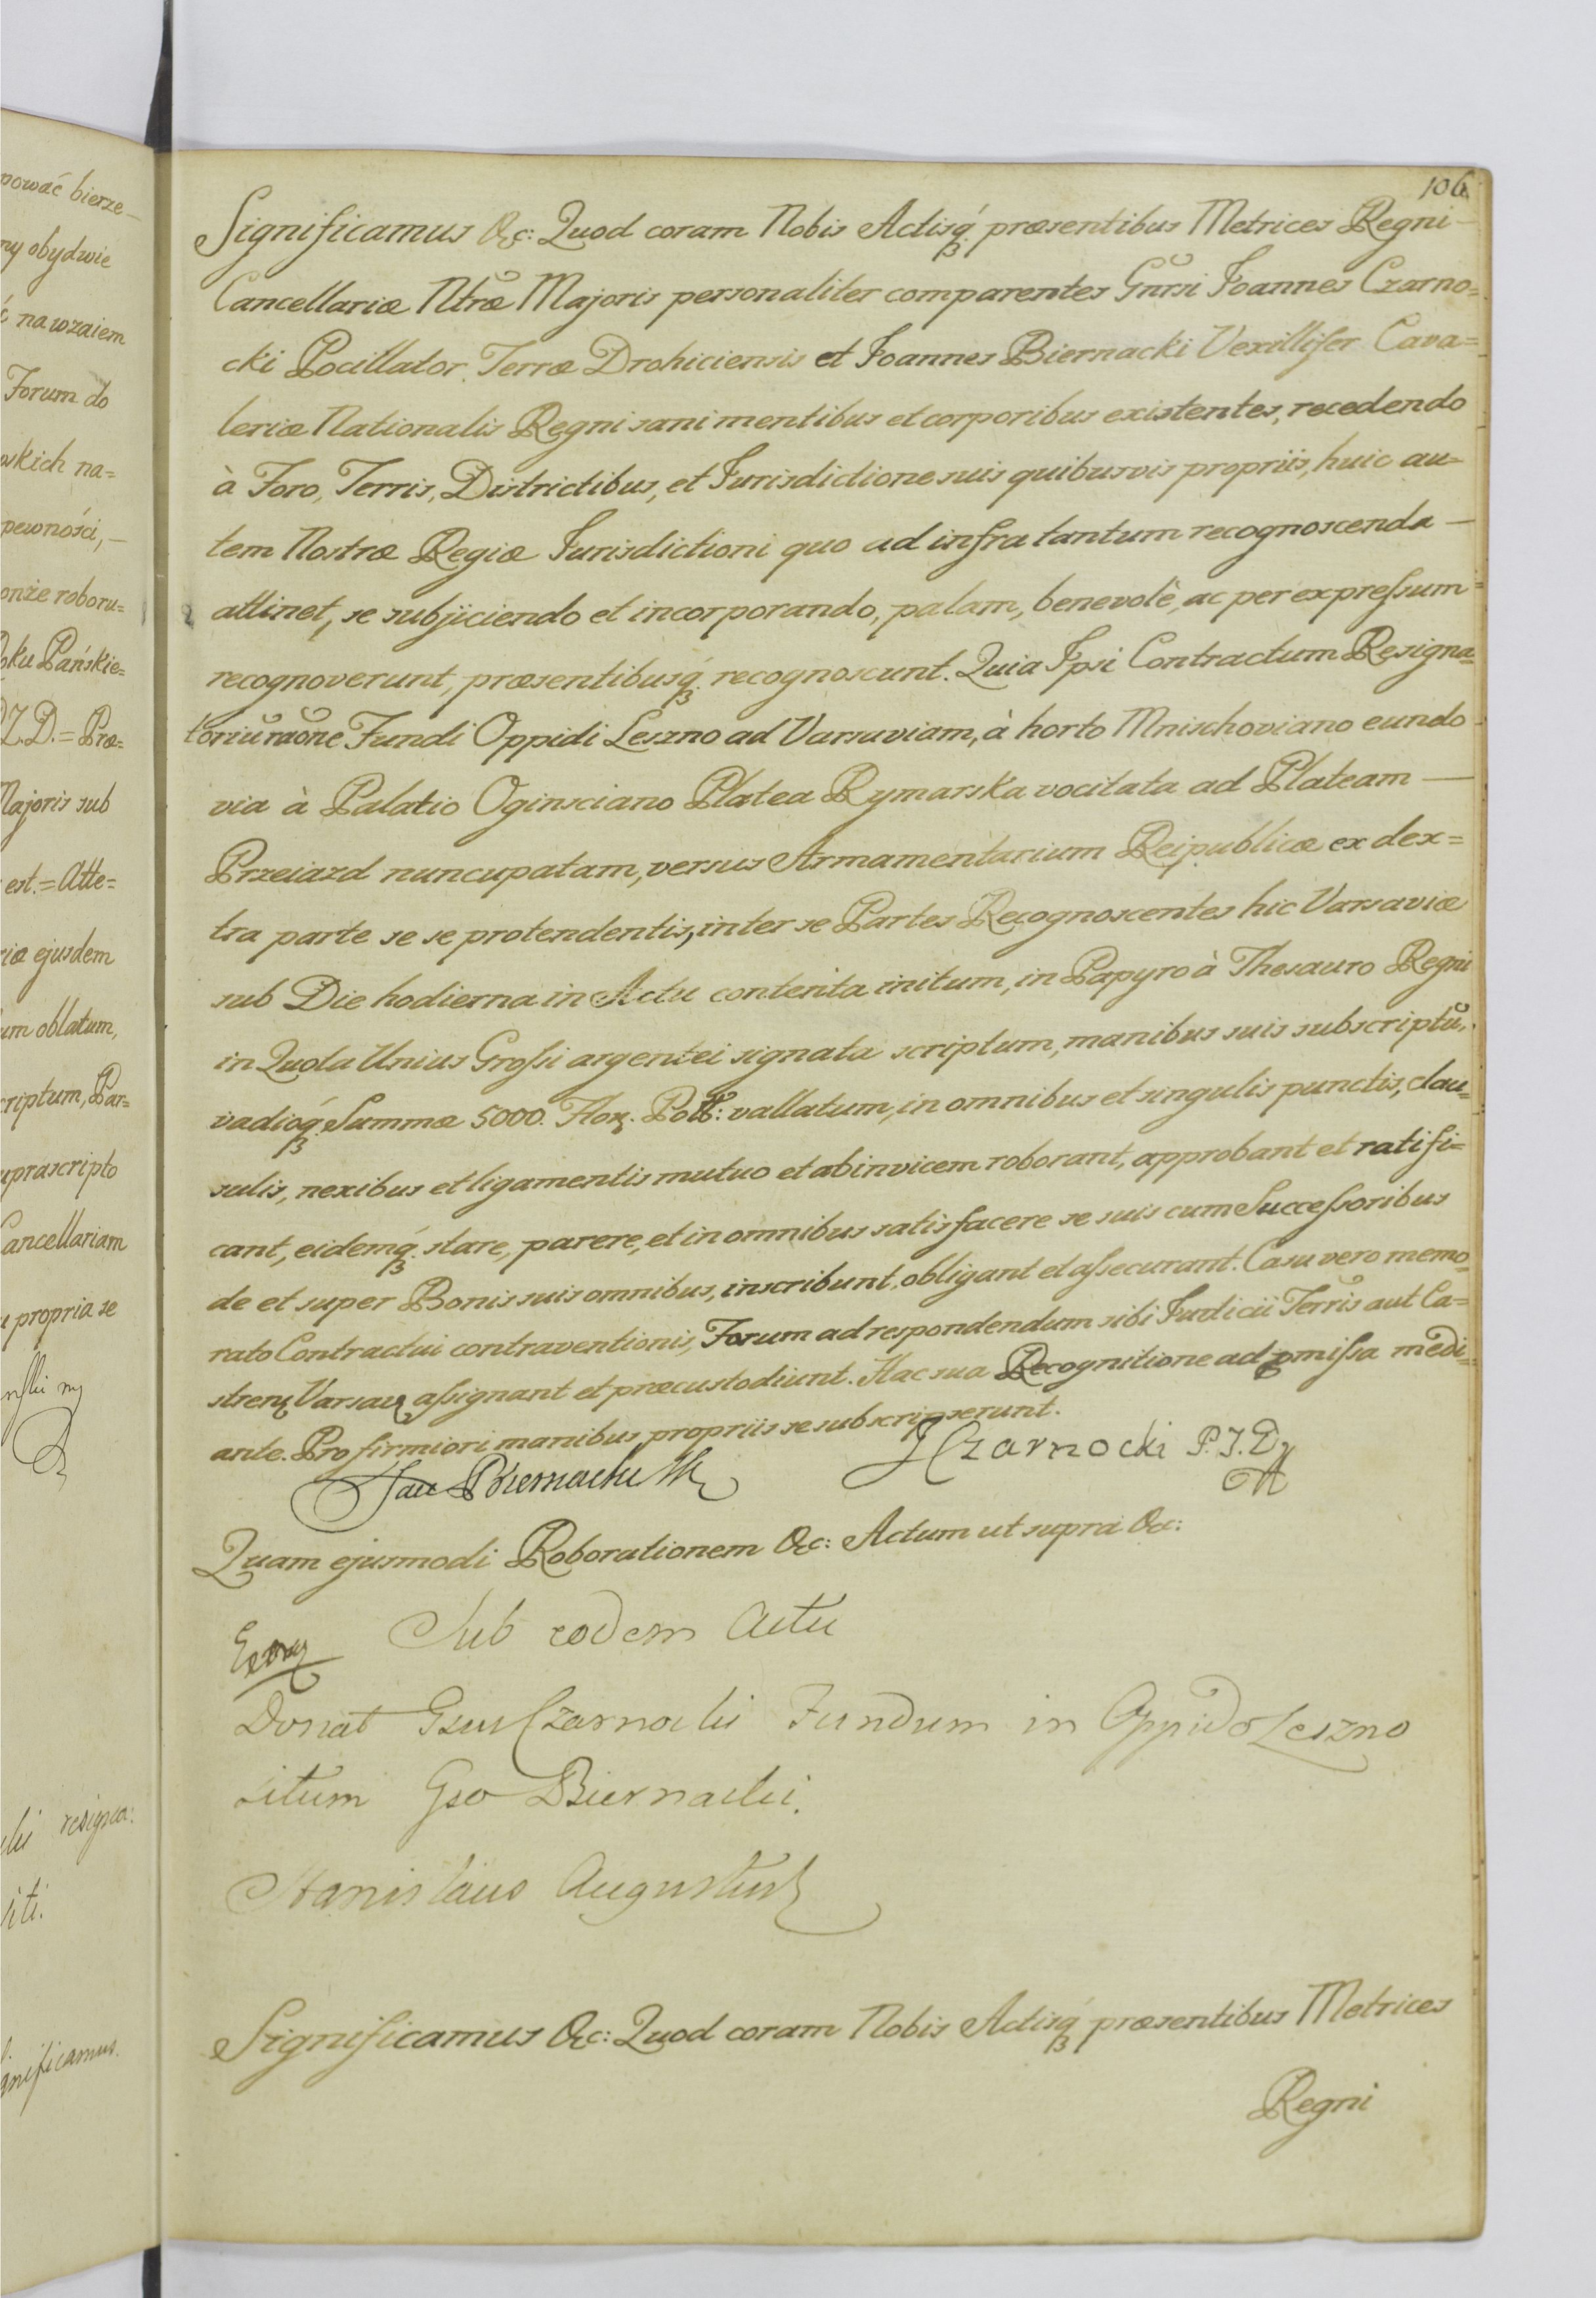 nować bierze-
ny obydwie
ć nawzaiem
Forum do
skich na=
pewności,-
onże roboru=
oku Pańskie=
P.Z.D.= Præ=
Majoris sub
est.= Atte=
riæ ejusdem
um oblatum,
criptum, Par=
uprascripto
Cancellariam
u propria se
resigna:
siti.
gnificamus.
106
Significamus &c: Quod coram Nobis Actisq́ præsentibus Metrices Regni-
Cancellariæ Ntræ Majoris personaliter comparentes Gnrsi Joannes Czarno=
cki Pocillator Terræ Drohiciensis et Joannes Biernacki Vexillifer Cava=
leriæ Nationalis Regni sani mentibus et corporibus existentes, recedendo
à Foro, Terris, Districtibus, et Jurisdictione suis quibusvis propriis, huic au=
tem Nostræ Regiæ Jurisdictioni quo ad infra tantum recognoscenda —
attinet, se subjiciendo et incorporando, palam, benevolè, ac per expreſsum
recognoverunt, præsentibusq́ recognoscunt. Quia Ipsi Contractum Resigna=
toriũ raõne Fundi Oppidi Leszno ad Varsaviam, à horto Mnischoviano eundo
via à Palatio Oginsciano Platea Rymarska vocitata ad Plateam —
Przeiazd nuncupatam, versus Armamentarium Reipublicæ ex dex=
tra parte se se protendentis, inter se Partes Recognoscentes hic Varsaviæ
sub Die hodierna in Actu contenta initum, in Papyro à Thesauro Regni
in Quota Unius Groſsi argentei signata scriptum, manibus suis subscriptũ,
vadioq́ Summæ 5000. Flor. Poll: vallatum, in omnibus et singulis punctis, clau=
sulis, nexibus et ligamentis mutuo et abinvicem roborant, approbant et ratifi=
cant, eidemq́ stare, parere, et in omnibus satisfacere se suis cum Succeſsoribus
de et super Bonis suis omnibus, inscribunt, obligant et aſsecurant. Casu vero memo=
rato Contractui contraventionis, Forum ad respondendum sibi Judicii Terris aut Ca=
stren Varsav aſsignant et præcustodiunt. Hac sua Recognitione ad p̱miſsa medi=
ante. Pro firmiori manibus propriis se subscripserunt.
Jan Biernacki
JCzarnocki P.Z.D
Quam ejusmodi Roborationem &c: Actum ut supra &c:
Sub eodem Actu
Donat Gsus Czarnocki Fundum in Oppido Leszno
situm Gso Biernacki.
Stanislaus Augustus
Significamus &c: Quod coram Nobis Actisq́ præsentibus Metrices
Regni